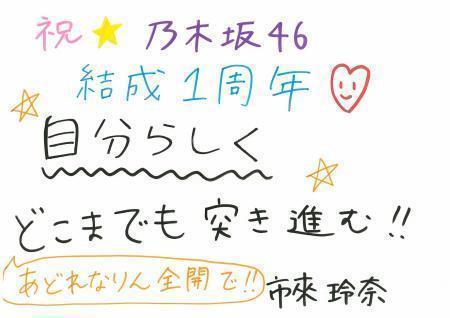 祝★乃木坂46
結成1周年
自分らしく
どこまでも突き進む!!
あどれなりん全開で!!
市來玲奈